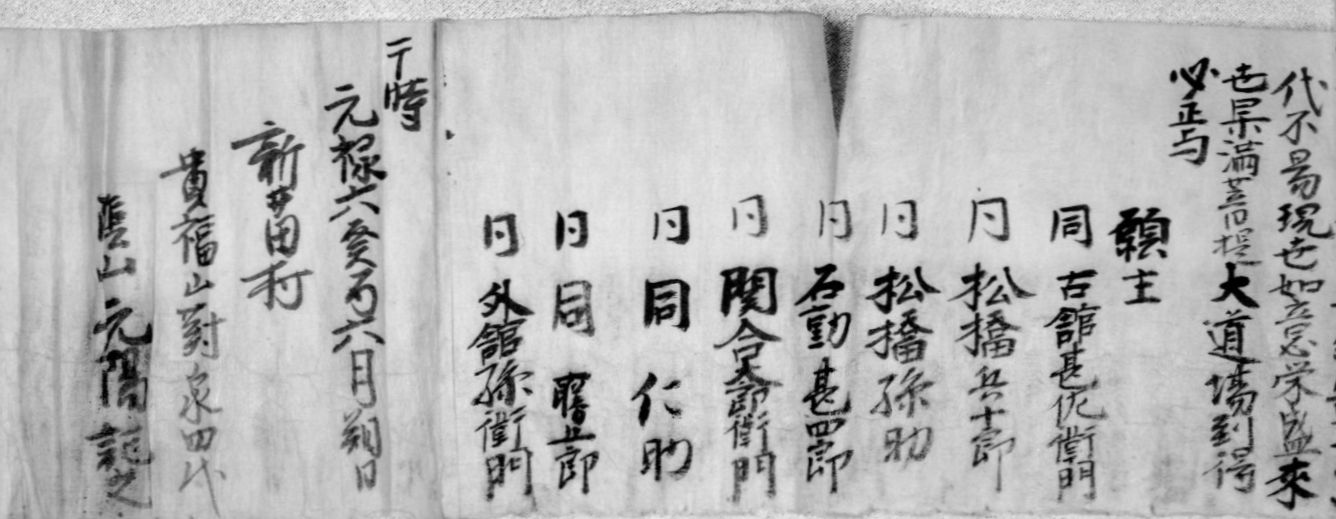 代不易現世如意息栄盛来
世果満菩提大道場到得
必正与
願主
同 古舘甚佐衛門
同 松橋兵十郎
同 松橋孫助
同 石動甚四郎
同 関合 衛門
同 同 仁助
同 同 五郎
同 外舘孫衛門
干時
元禄六癸酉六月朔日
新井田村
貴福山對泉四代
山元陽記之